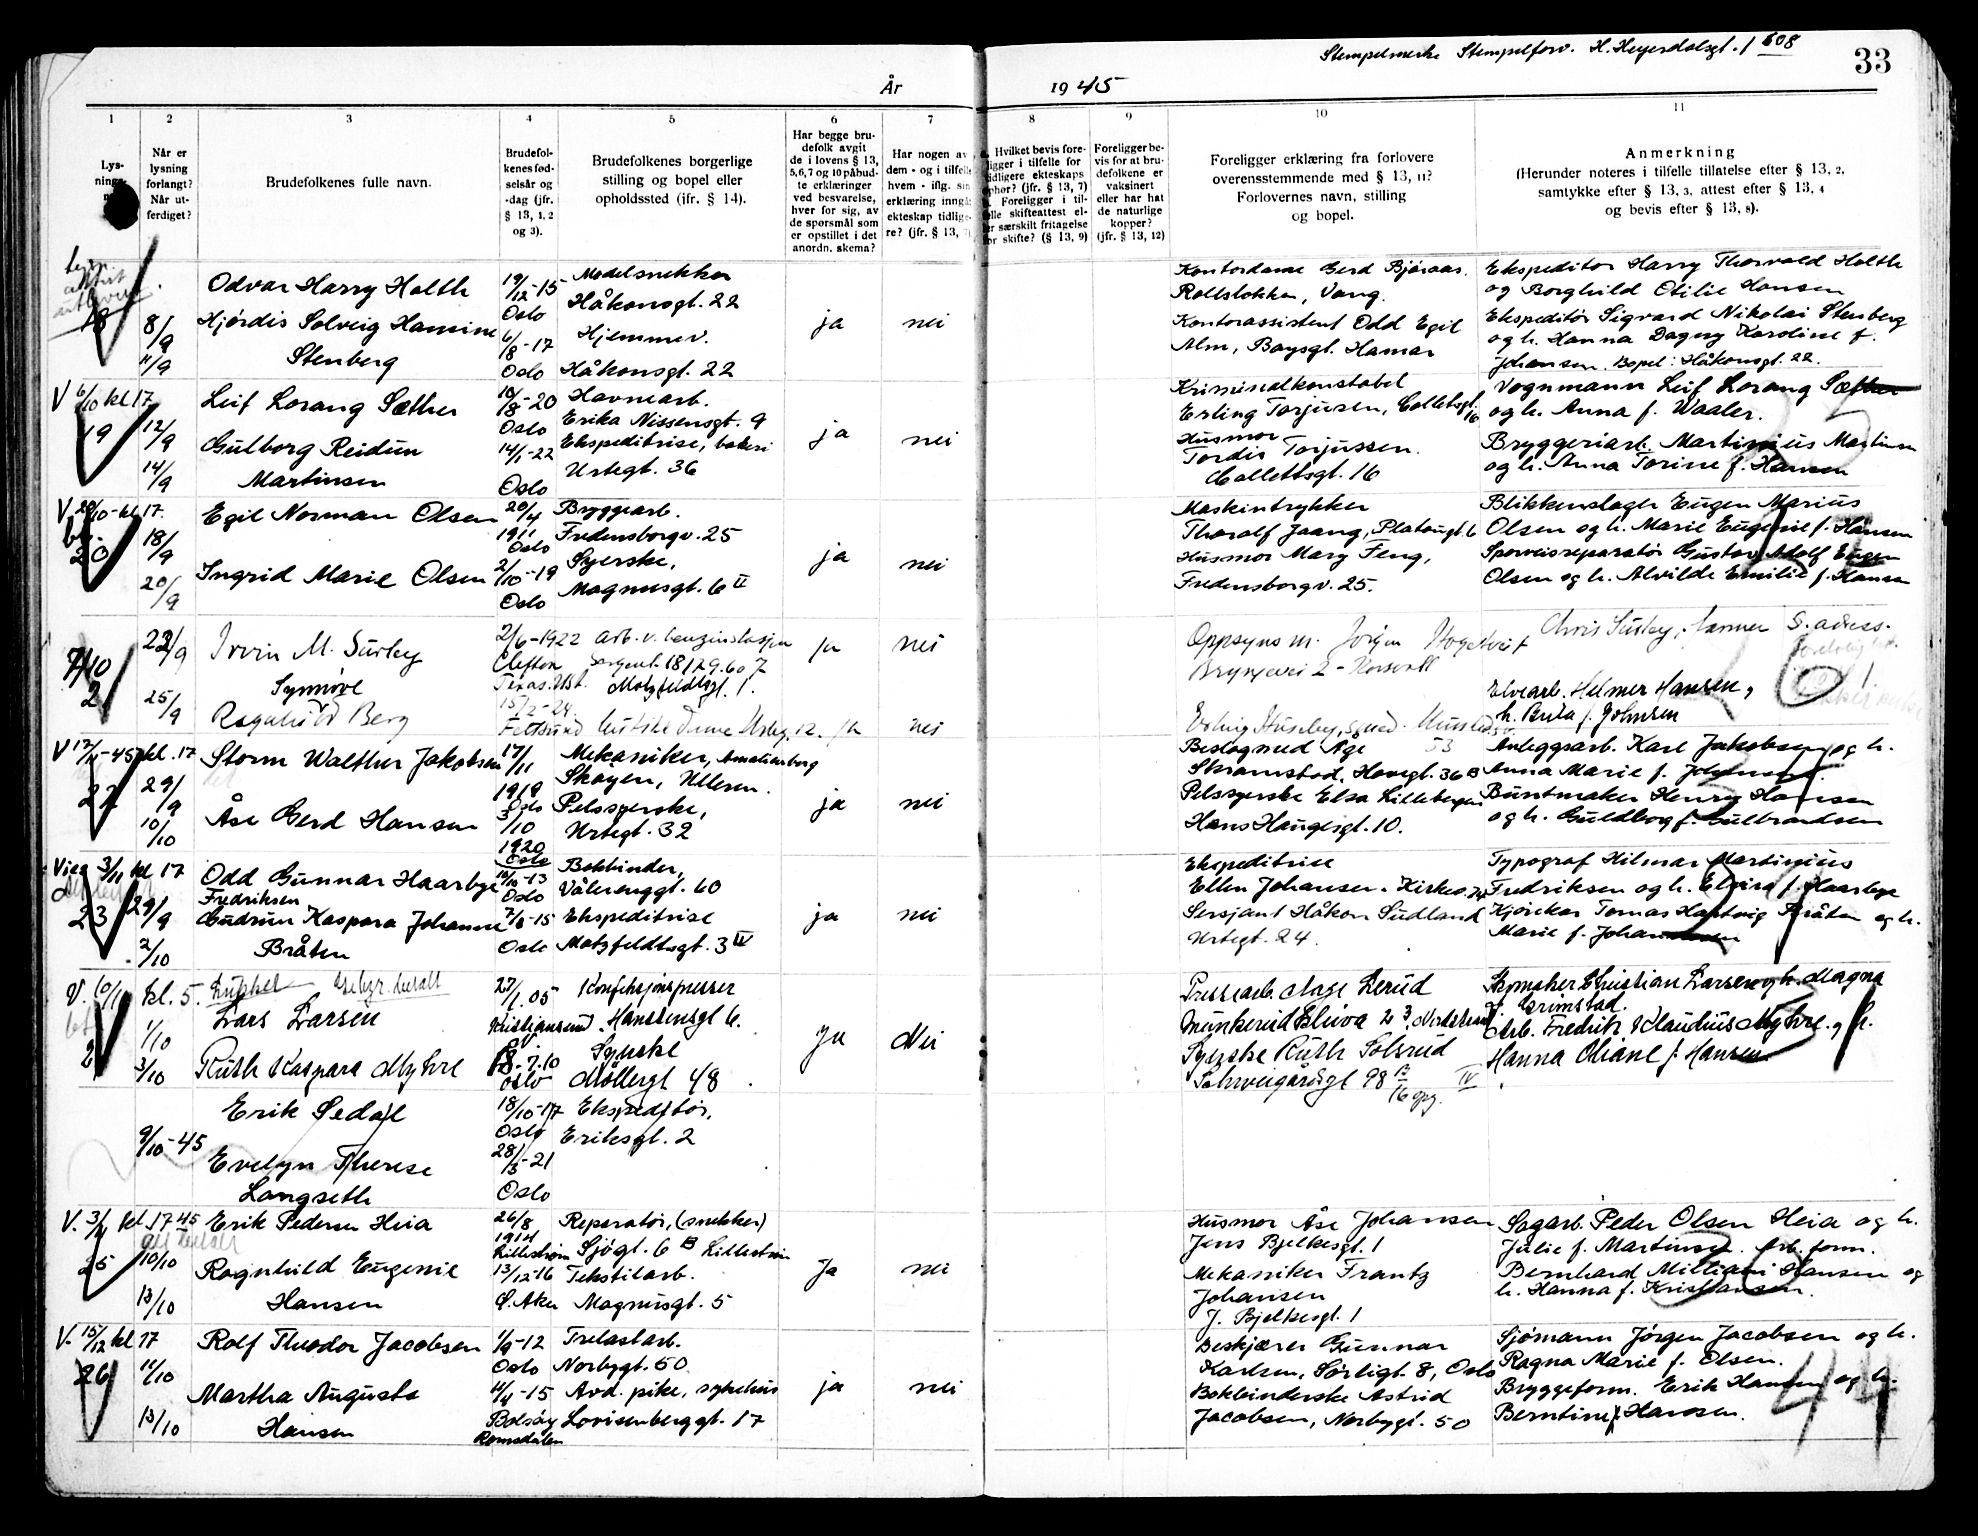 Stempelmerke Stempelforv. H. Heyerdalsgt. 1 608
33
År 1945
1
2
3
4
5
6
7
8
9
10
11
Når er lysning forlangt? Når ut-ferdiget?
Brudefolkenes fulle navn.
Brudefol-kenes fød-selsår og -dag (jfr. § 13, 1, 2 og 3).
Brudefolkenes borgerlige stilling og bopel eller opholdssted (jfr. § 14).
Har begge bru-defolk avgit de i lovens § 13, 5,6,7 og 10 påbud-te erklæringer ved besvarelse, hver for sig, av de spørsmål som er opstillet i det anordn. skema?
Har nogen av dem - og i tilfelle hvem - iflg. sin erklæring inngått ekteskap tidlige-re? (jfr. § 13,
Hvilket bevis fore-ligger i tilfelle for tidligere ekteskaps ophør? (jfr. § 13, 7) Foreligger i til-felle skifteattest el-ler særskilt fritagelse for skifte? (§ 13, 9)
Foreligger be-vis for at bru-defolkene er vaksinert eller har hat de naturlige kopper? (jfr. § 13, 12)
Foreligger erklæring fra forlovere overensstemmende med § 13, 11? Forlovernes navn, stilling og bopel.
Anmerkning (Herunder noteres i tilfelle tillatelse efter § 13, 2, samtykke efter § 13, 3, attest efter § 13, 4 og bevis efter § 13, 8).
18
8/9
11/9
Odvar Harry Holth
Hjørdis Solveig Hansine
Stenberg
19/12-15
Oslo
6/8-17
Oslo
Modelsnekker
Håkonsgt. 22
Hjemmev.
Håkonsgt. 22
ja
nei
Kontordame Gerd Bjøraas.
Rollslokken, Vang.
Kontorassistent Odd Egil
Alm, Baysgt. Hamar
Ekspeditør Harry Thorvald Holth
og Borghild Otilie Hansen
Ekspeditør Sigvard Nikolai Stenberg
og h. Hanna Dagny Karoline f.
Johansen. Bopel: Håkonsgt. 22.
V 6/10 kl 17
19
12/9
14/9
Leif Lorang Sæther
Gulborg Reidun
Martinsen
10/8-20
Oslo
14/1-22
Oslo
Havnearb.
Erika Nissensgt. 9
Ekspeditrise, bakeri
Urtegt. 36
ja
nei
Kriminalkonstabel
Erling Torjusen, Colletsgt. 16
Husmor
Tordis Torjussen.
Collettsgt. 16
Vognmann Leif Lorang Sæther
og h. Anna f. Waaler.
Bryggeriarb. Martinius Martinsen
og h. Anna Torine f. Hansen
V. 20/10 - kl 17.
20
18/9
20/9
Egil Norman Olsen
Ingrid Marie Olsen
20/4
1911
Oslo
2/10-19
Oslo
Bryggearb.
Fredensborgv. 25
Syerske,
Magnusgt. 6 II
ja
nei
Maskintrykker
Thoralf Jaang, Platougt. 6
Husmor Mary Feng,
Fredensborgv. 25.
Blikkenslager Eugen Marius
Olsen og h. Marie Eugenie f. Hansen
Sporveisreparatør Gustav Adolf Eugen
Olsen og h. Alvilde Emilie f. Hansen
7/10
2
22/9
25/9
Irvin M. Surley
Synnøve
Ragnhild Berg
2/6-1922
Clifton
Texas. USA.
15/2-24.
Fetsund
Arb. v. benzinstasjon
Sergeant 18129607
Motzfeldtsgt. 1.
ja
nei
nei
Oppsynsm. Jørgen
2 - Korsvoll
Chris Surley, farmer
Elvearb. Helmer Hansen,
h. Berta f. Johnsen
61.
V 17/11-45 kl. 17
22
29/9
10/10
Storm Walther Jakobsen
Åse Gerd Hansen
17/11
1919
Oslo
3/10
1920
Oslo
Mekaniker, Amalienborg
Skøyen, Ullern.
Pelssyerske,
Urtegt. 32
ja
nei
Beslagsmed Åge
Skramstad, Havegt. 36 B
Pelssyerske Elsa Lillebergen
Hans Haugesgt. 10.
Anleggsarb. Karl Jakobsen og h.
Anna Marie f. Johansen.
Buntmaker Henry Hansen
og h. Guldborg f. Gulbrandsen
Vies 3/11 kl 17
23
29/9
2/10
Odd Gunnar Haarbye
Fredriksen
Gudrun Kaspara Johanne
Bråten
10/10-13
Oslo
7/8-15
Oslo
Bokbinder,
Vålerenggt. 60
Ekspeditrise
Motzfeldtsgt. 3 IV
ja
nei
Ekspeditrise
Ellen Johansen. Kirkev. 24
Sersjant Håkon Sudland
Urtegt. 24.
Typograf Hilmar Martinius
Fredriksen og h. Elvira f. Haarbye
Kjørekar Tomas Hartvig Bråten og h.
Marie f. Johannessen
V. 10/11 kl. 5.
1/10
3/10
Lars Larsen
Ruth Kaspara Myhre
27/1.05
Kristiansund
18.7.10
Oslo
Konfeksjonspresser
Hanstensgt 6.
Syerske
Møllergt 48
Ja
Nei
Pressearb. Aage Lerud
Munkerud Elisva 23, Nordstrand
Syerske Ruth Solsrud
Schweigårdsgt 98 B
16 opg. IV
Skomaker Christian Larsen og h. Magna
f. Grimstad.
Arb. Fredrik Klaudius Myhre og h.
Hanna Oliane f. Hansen.
9/10-45
Erik Sedal
Evelyn Therese
Langseth
18/10-17
Oslo
28/3-21
Oslo
Ekspeditør,
Eriksgt. 2
V. 3/11 kl 17 45
25
10/10
13/10
Erik Pedersen Heia
Ragnhild Eugenie
Hansen
26/8
1914
Lillestrøm
13/12-16
Ø. Aker
Reparatør, (snekker)
Sjøgt. 6 B Lillestrøm
Tekstilarb.
Magnusgt. 5
Ja
nei
Husmor Åse Johansen
Jens Bjelkesgt. 1
Mekaniker Frantz
Johansen
J. Bjelkesgt. 1
Sagarb. Peder Olsen Heia og h.
Julie f. Martinsen. Arb. form.
Bernhard Milliani Hansen og
h. Hanna f. Kristiansen.
V. 15/12 kl 17
26
11/10
13/10
Rolf Theodor Jacobsen
Martha Augusta
Hansen
1/9-12
Oslo
11/4-15
Bolsøy
Romsdalen
Trelastarb.
Norbygt. 50.
Avd. pike, sykehus
Lovisenberggt. 17
ja
nei
Beskjærer Gunnar
Karlsen, Sørligt. 8, Oslo
Bokbinderske Astrid
Jacobsen, Norbygt. 50
Sjømann Jørgen Jacobsen og h.
Ragna Marie f. Olsen.
Bryggeform. Erik Hansen og h.
Berntine f. Hansen.
44